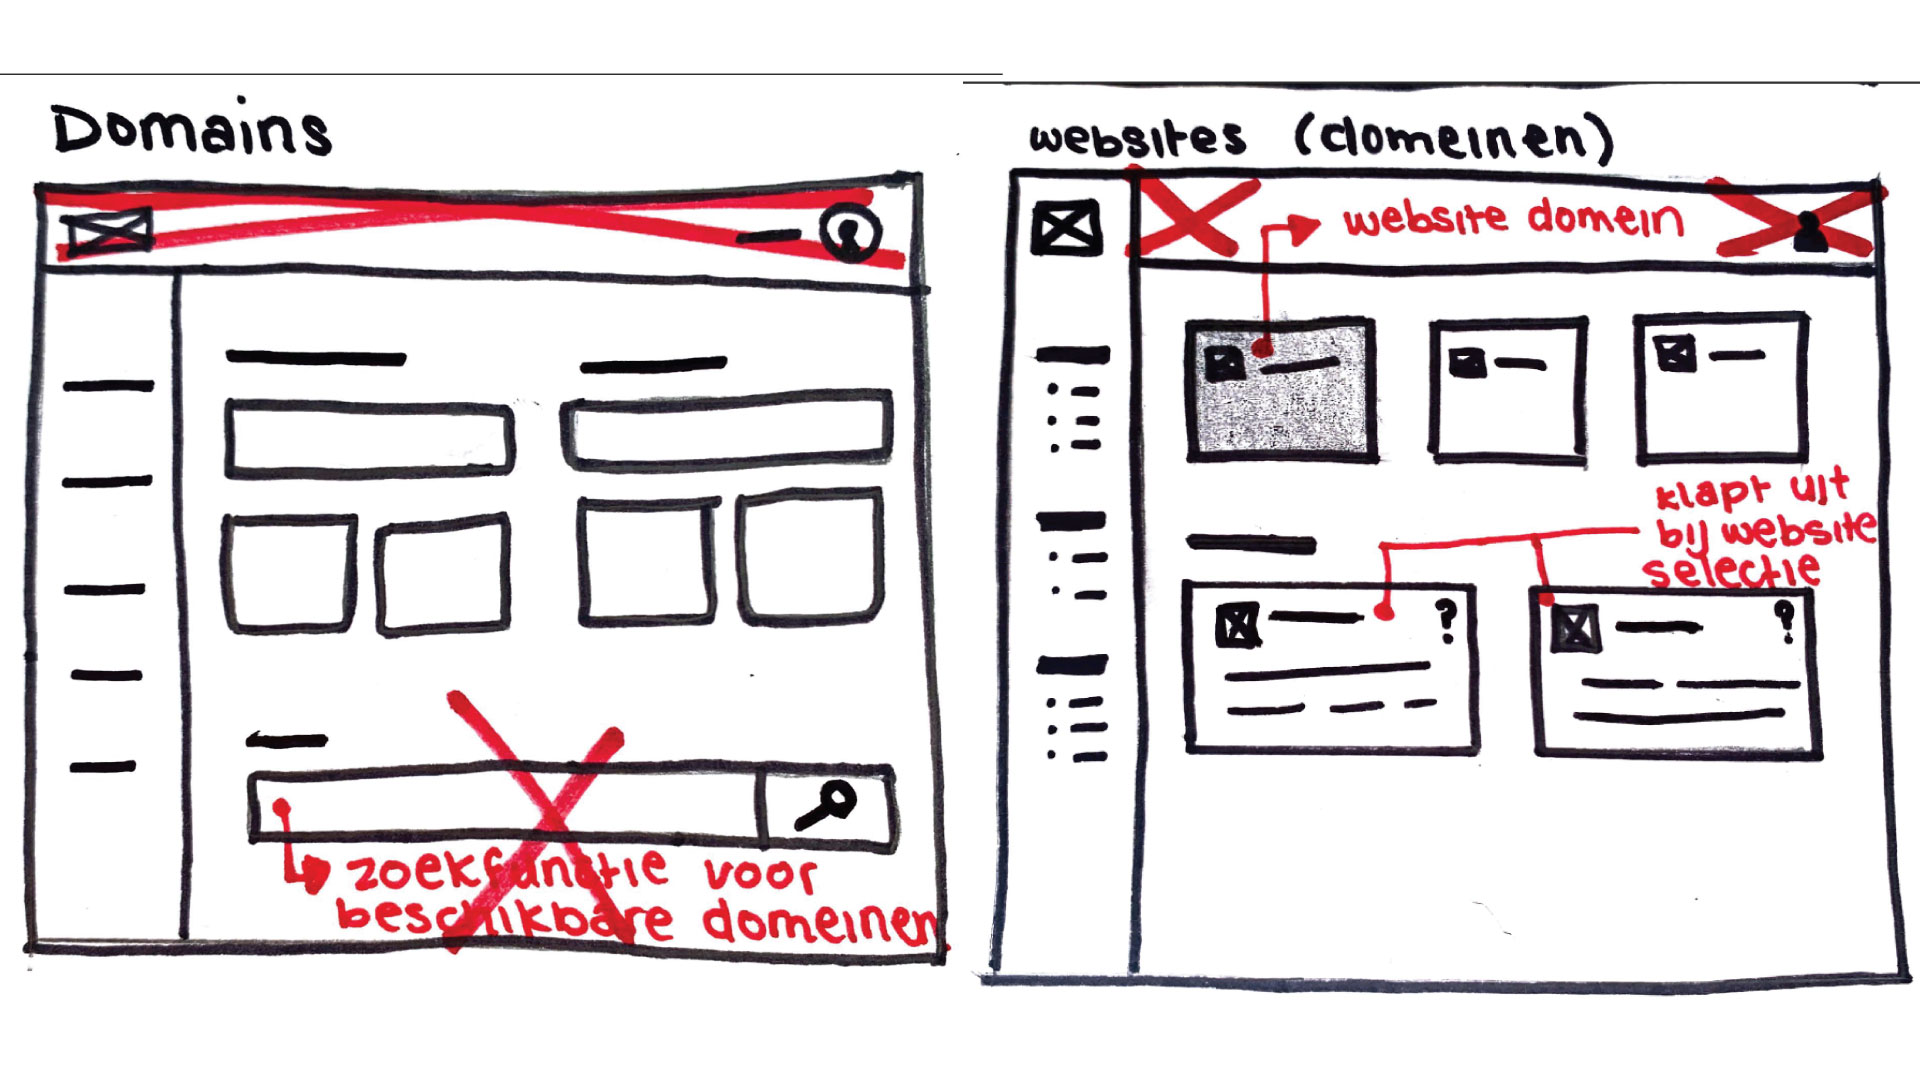 Domains
zoekfunctie voor
beschikbare domeinen
websites (domeinen)
website domein
klapt uit
bij website
selectie
?
?